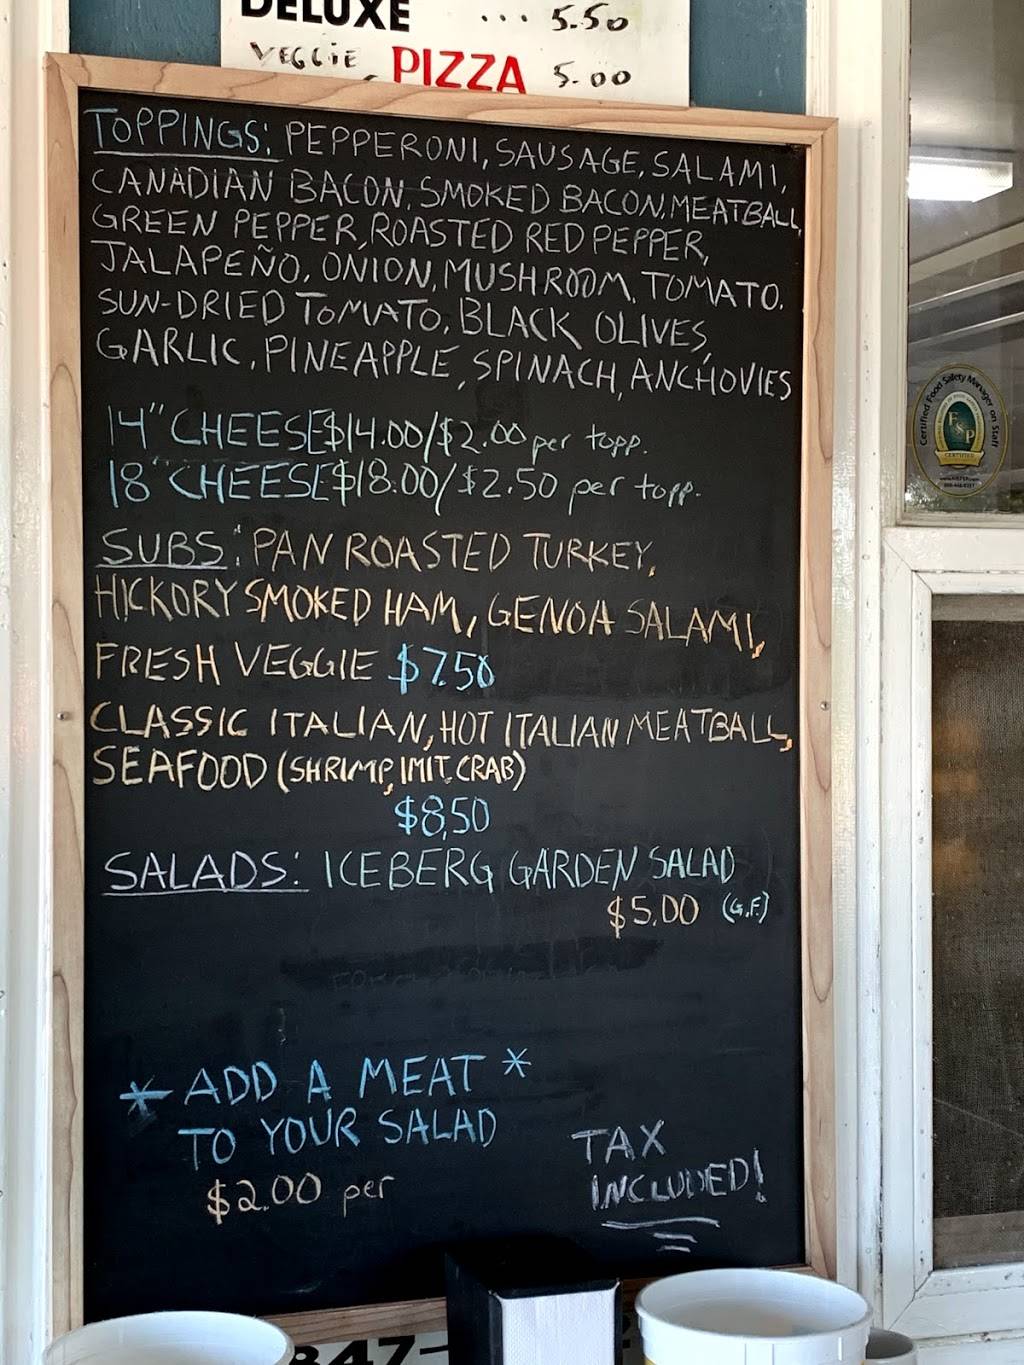 DELUXE ... 5.50
VEGGIE PIZZA 5.00
TOPPINGS: PEPPERONI, SAUSAGE, SALAMI,
CANADIAN BACON, SMOKED BACON, MEATBALL,
GREEN PEPPER, ROASTED RED PEPPER,
JALAPEÑO, ONION, MUSHROOM, TOMATO,
SUN-DRIED TOMATO, BLACK OLIVES,
GARLIC, PINEAPPLE, SPINACH, ANCHOVIES
14" CHEESE $14.00/$2.00 per topp.
18" CHEESE $18.00/$2.50 per topp.
SUBS: PAN ROASTED TURKEY,
HICKORY SMOKED HAM, GENOA SALAMI,
FRESH VEGGIE $7.50
CLASSIC ITALIAN, HOT ITALIAN MEATBALL,
SEAFOOD (SHRIMP, IMIT. CRAB)
$8.50
SALADS: ICEBERG GARDEN SALAD
$5.00 (G.F.)
* ADD A MEAT *
TO YOUR SALAD
$2.00 per
TAX
INCLUDED!
Certified Food Safety Manager on Staff
FSP
CERTIFIED
847-